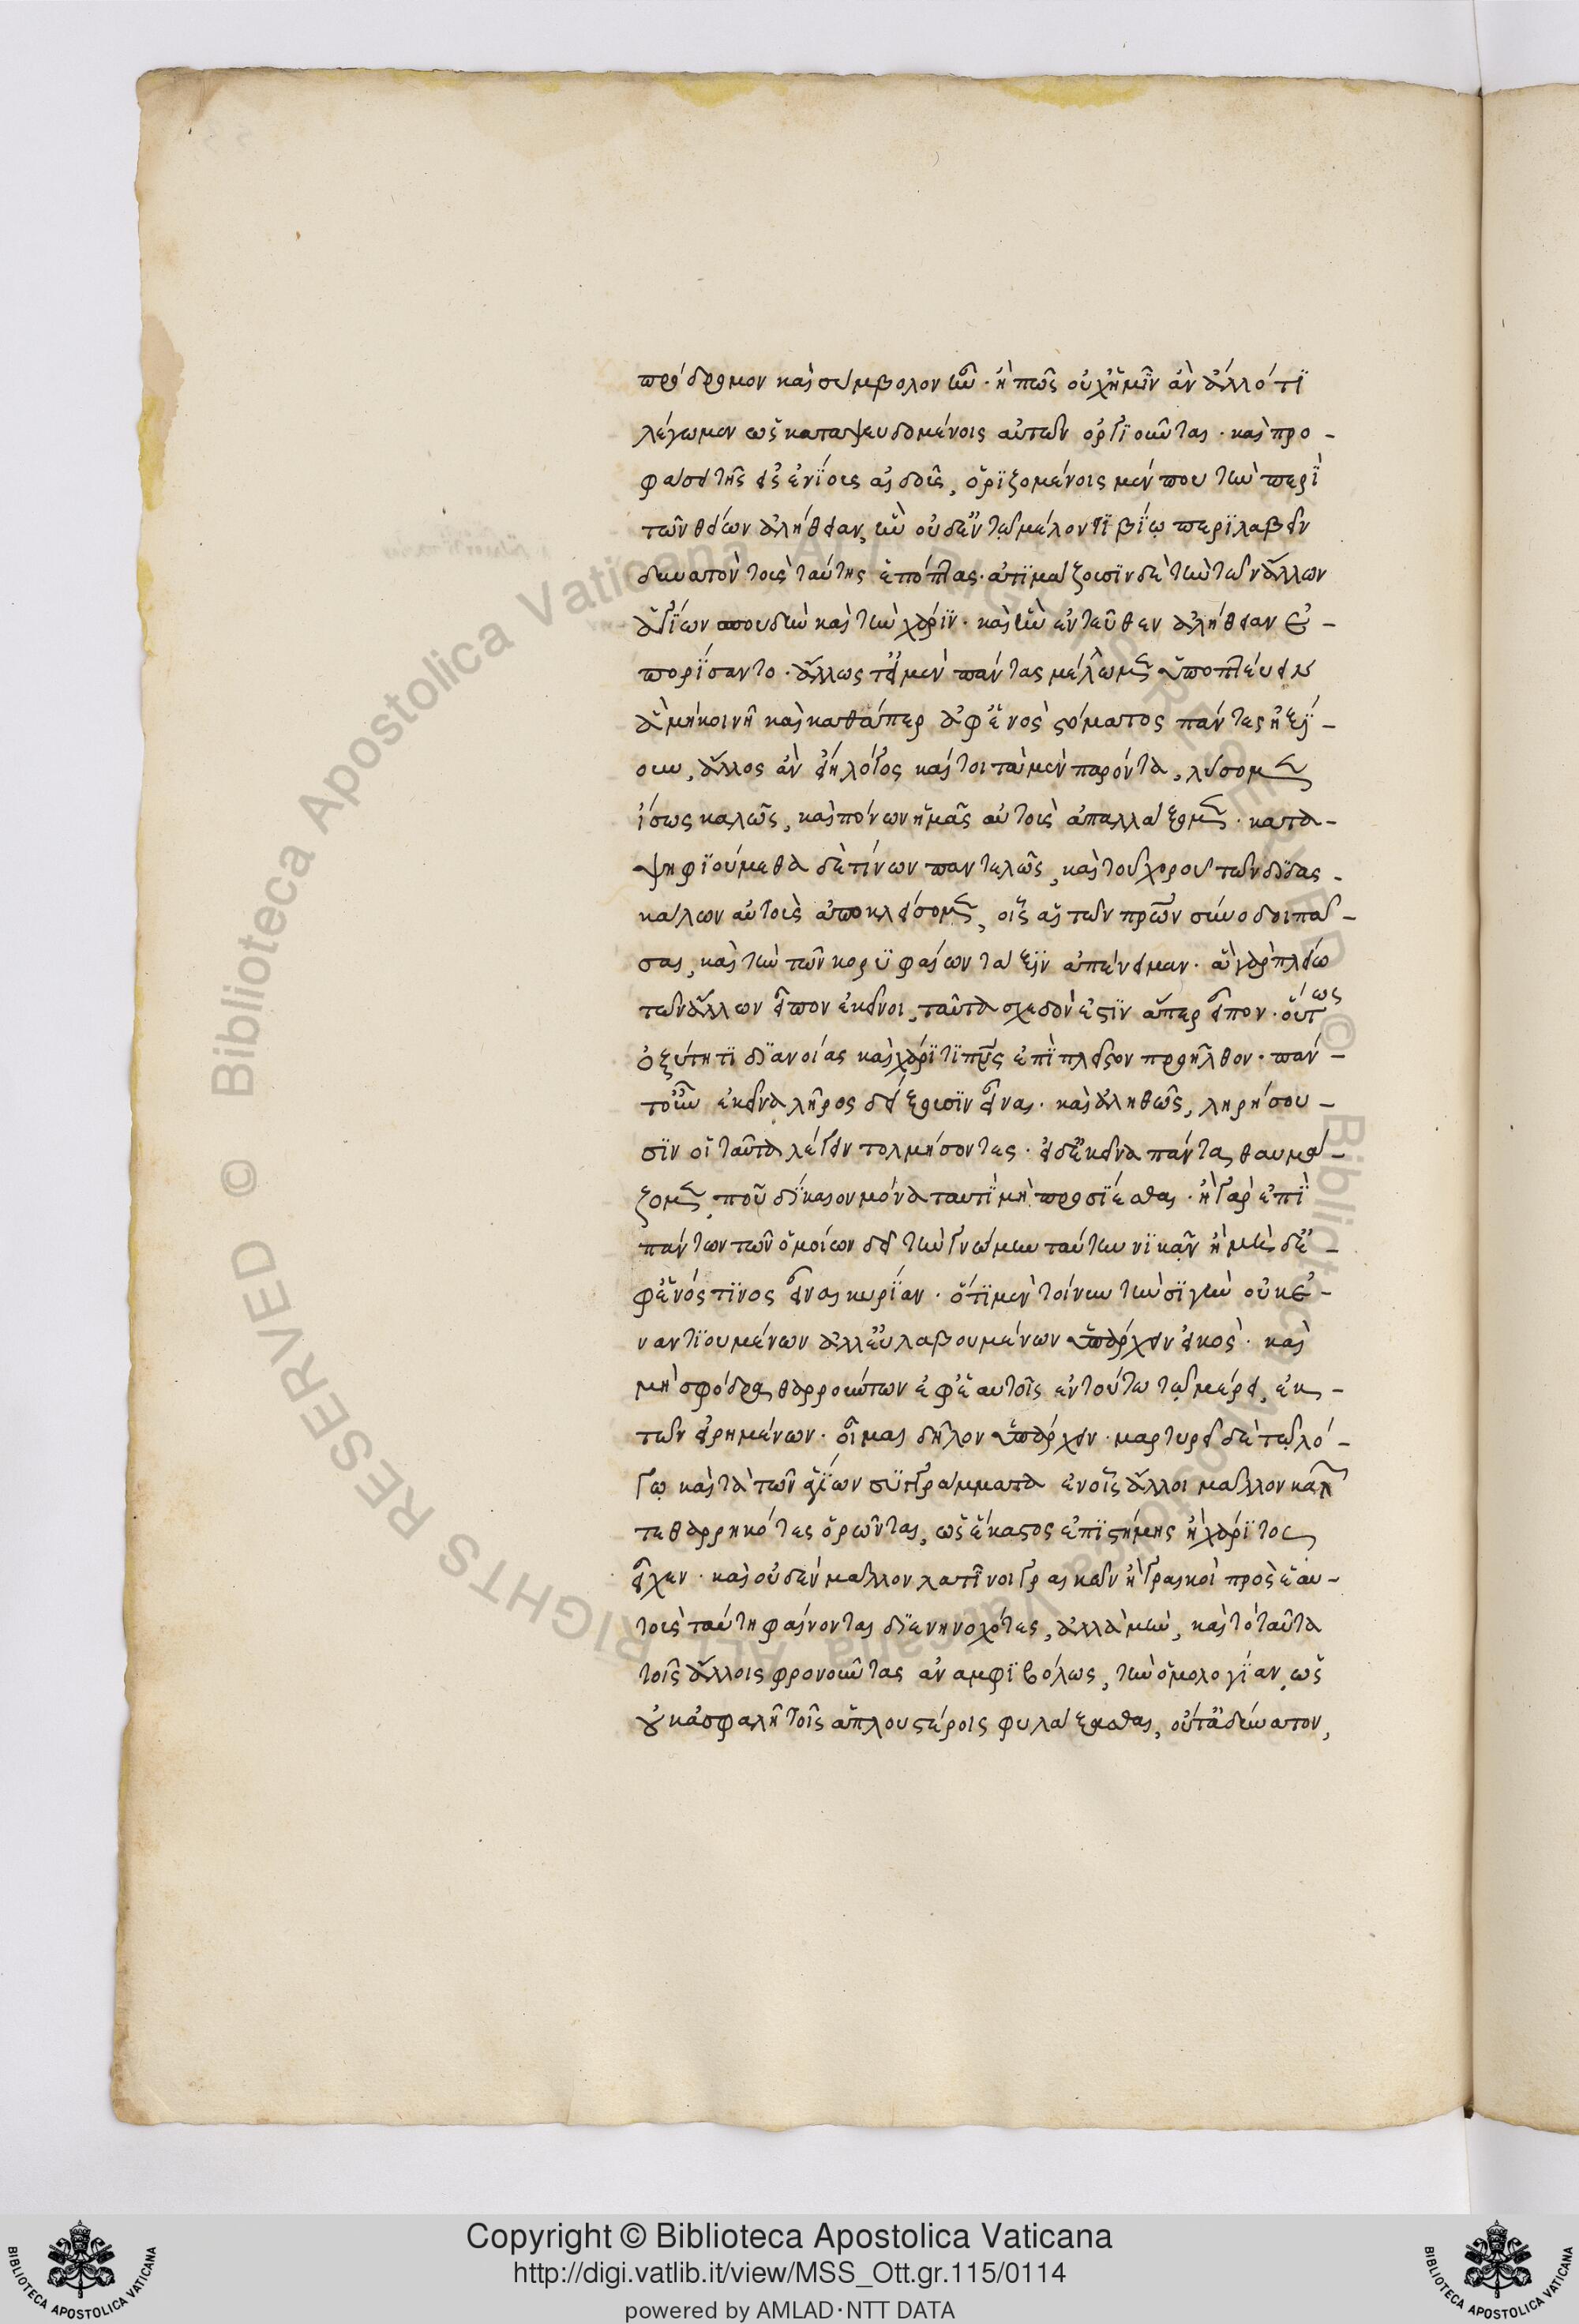 πρόδρομον καὶ σύμβολον ἦν· ἢ πῶς οὐχ ἡμῖν ἂν ἄλλό τϊ
λέγωμεν ὡς καταψευδομένοις αὐτῶν ὀργιοῦνται· καὶ προ-
τῶν θείων ἀλήθειαν, ἣν οὐδὲν τῷ μέλοντϊ βίῳ περϊλαβεῖν
δυνατὸν τοὺς ταύτης ἐπόπτας· ἀτϊμάζουσϊν δὲ τὴν τῶν ἄλλων
ἁγίων σπουδὴν καὶ τὴν χάρϊν· καὶ ἣν ἐντεῦθεν ἀλήθειαν ἐ-
πορίσαντο· ἄλλως τε εἰ μὲν πάντας μέλλωμεν ὑποπτεύειν
ἃ μὴ κοινῇ καὶ καθάπερ ἀφ' ἑνὸς στόματος πάντες
ἄλλος ἂν εἴη λόγος καίτοι τὰ μὲν παρόντα, λύσομεν
ἴσως καλῶς, καὶ πόνων ἡμᾶς αὐτοὺς ἀπαλλάξομεν· κατα-
ψηφϊούμεθα δὲ τίνων παντελῶς, καὶ τοῦ χοροῦ τῶν δϊδασ-
κάλων αὐτοὺς ἀποκλείσομεν, οἷς αἱ τῶν πρων σύνοδοι πᾶ-
σαι, καὶ τὴν τῶν κορϋφαίων τάξϊν ἀπένειμαν· ἃ γὰρ πλείω
τῶν ἄλλων εἶπον ἐκεῖνοι, ταῦτα σχεδὸν ἐστϊν ἅπερ εἶπον· οὕτως
ὀξύτητϊ δϊανοίας καὶ χάρϊτϊ πνς ἐπὶ πλεῖστον προῆλθον· πάν-
τ' οὖν ἐκεῖνα λῆρος δείξουσϊν εἶναι· καὶ ἀληθῶς, ληρήσου-
σϊν οἱ ταῦτα λέγειν τολμήσοντες· εἰ δ' ἐκεῖνα πάντα, θαυμά-
ζομεν, ποῦ δίκαιον μόνα ταυτϊ μὴ προσΐεσθαι· ἢ γὰρ ἐπὶ
πάντων τῶν ὁμοίων δεῖ τὴν γνώμην ταύτην νϊκᾶν ἢ μὴ δ' ἐ-
φ' ἑνός τϊνος εἶναι κυρίαν· ὅτϊ μὲν τοίνυν τὴν σϊγὴν οὐκ ἐ-
ναντϊουμένων ἀλλ' εὐλαβουμένων ὑπάρχειν εἰκὸς· καὶ
μὴ σφόδρα θαρρούντων ἐφ' ἑαυτοῖς ἐν τούτω τῷ μέρει, ἐκ
τῶν εἰρημένων· οἶμαι δῆλον ὑπάρχειν· μαρτυρεῖ δὲ τῷ λό-
γῳ καὶ τὰ τῶν ἁγίων σϋγγράμματα ἐν οἷς ἄλλοι μᾶλλον
τεθαρρηκότες ὁρῶνται, ὡς ἕκαστος ἐπϊστήμης ἢ χάρϊτος
εἶχεν· καὶ οὐδὲν μᾶλλον λατῖνοι γραικῶν ἢ γραικοὶ πρὸς ἑαυ-
τοὺς ταύτη φαίνονται δϊενηνοχότες, ἀλλὰ μὴν, καὶ τὸ ταῦτα
τοῖς ἄλλοις φρονοῦντας ἀναμφϊβόλως, τὴν ὁμολογίαν, ὡς
οὐκ ἀσφαλῆ τοῖς ἁπλουστέροις φυλάξασθαι, οὔτ' ἀδύνατον,
Copyright © Biblioteca Apostolica Vaticana
http://digi.vatlib.it/view/MSS_Ott.gr.115/0114
powered by AMLAD·NTT DATA
BIBLIOTECA APOSTOLICA VATICANA
BIBLIOTECA APOSTOLICA VATICANA
© Biblioteca Apostolica Vaticana ALL RIGHTS RESERVED